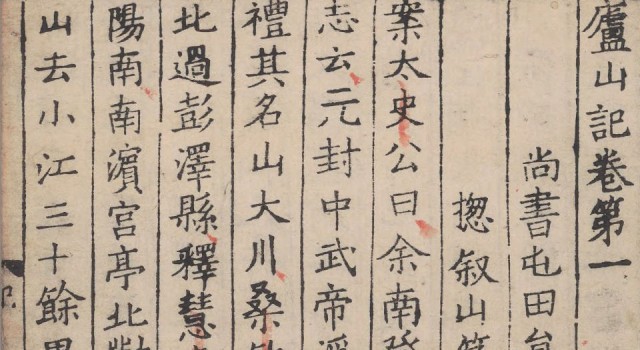 廬山記卷第一
尚書屯田員
揔叙山篇
案太史公曰余南登
志云元封中武帝
禮其名山大川桑
北過彭澤縣釋慧
陽南南濵宮亭北對
山去小江三十餘里